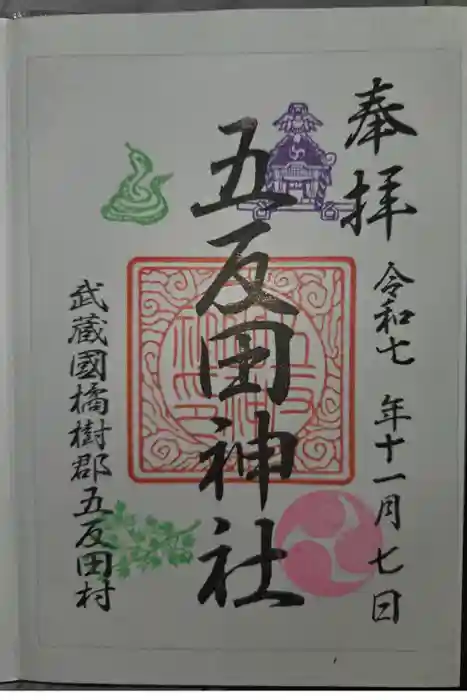 奉拝
令和七年十一月七日
五反田神社
武蔵國橘樹郡五反田村